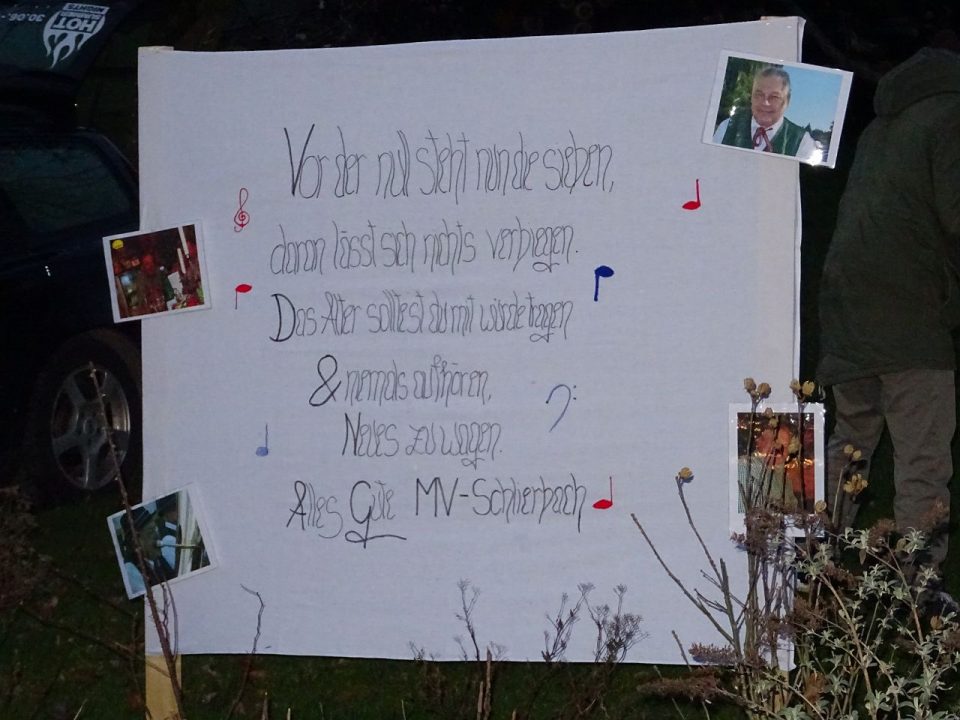 HOT
NIGHTS
30.06.-
Vor der null steht nun die sieben,
daran lässt sich nichts verbiegen.
Das Alter solltest du mit würde tragen
& niemals aufhören,
Neues zu wagen.
Alles Gute MV-Schlierbach